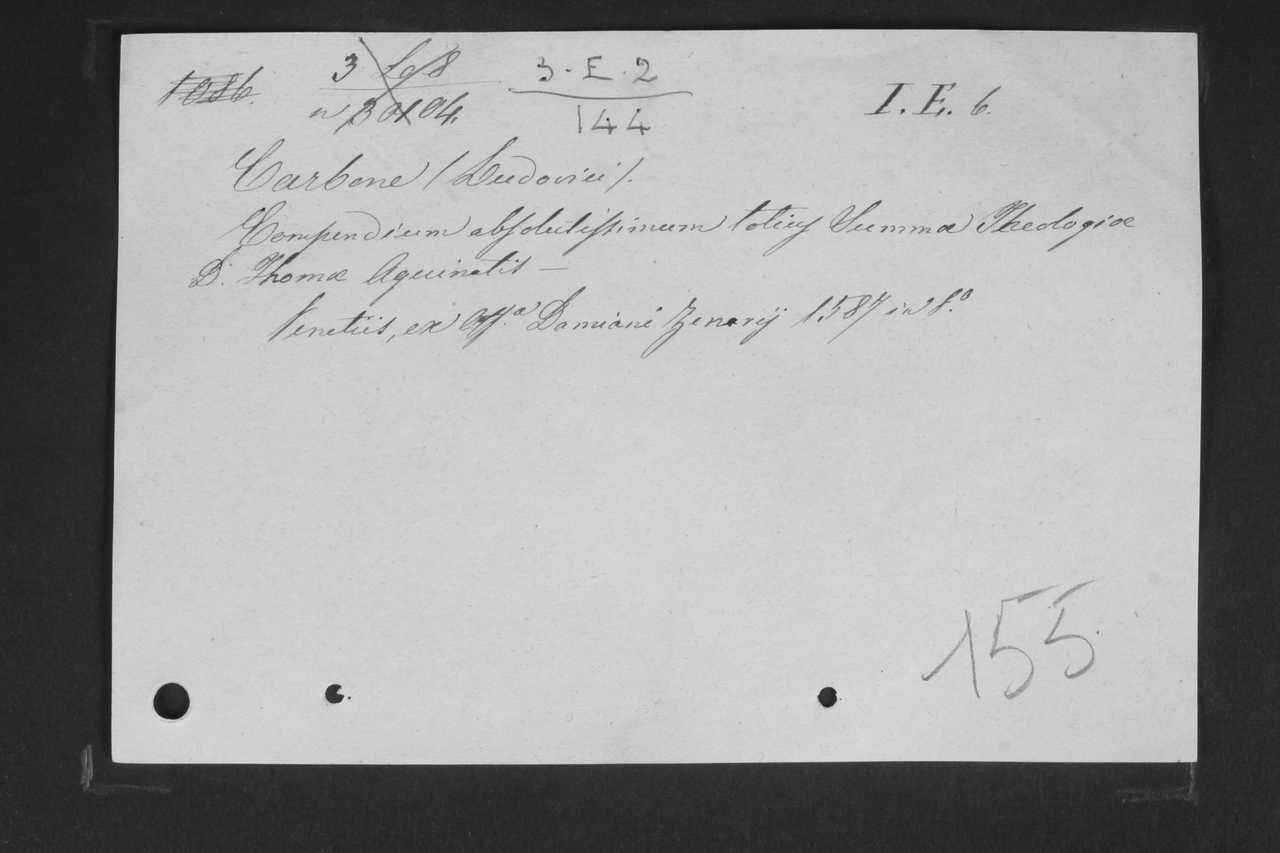 1086. 3 3-E-2 I. E. 6.
144
Carbone (Ludovici).
Compendium absolutissimum totius Summæ Theologiæ
D. Thomæ Aquinatis —
Venetiis, ex Off.ª Damiani Zenarij 1587 in 8.º
155.